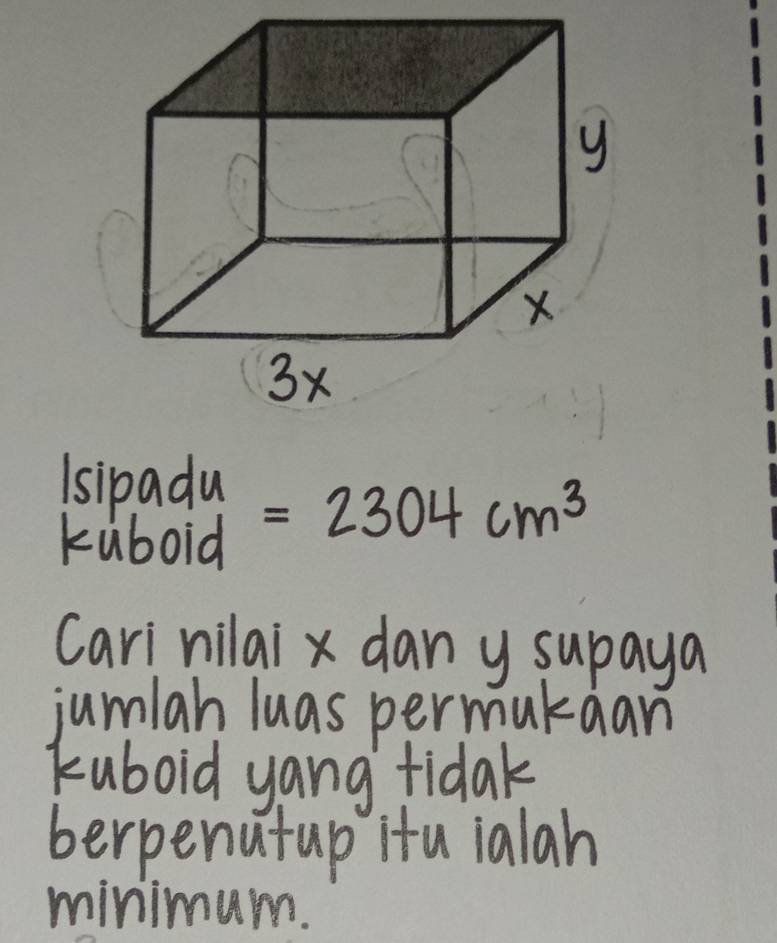 y
x
3x
Isipadu
kuboid = 2304 cm³
Cari nilai x dan y supaya
jumlah luas permukaan
kuboid yang tidak
berpenutup itu ialah
minimum.